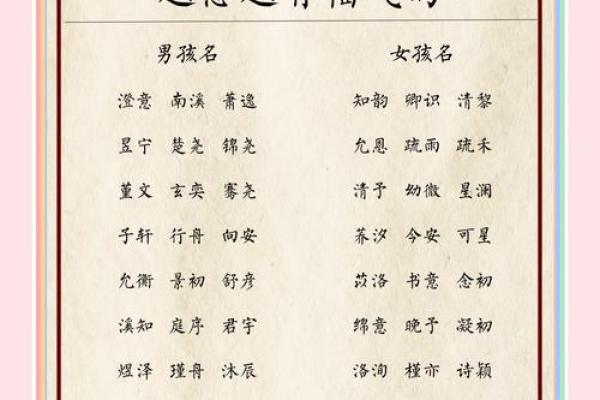 男孩名 女孩名
澄意 南溪 萧逸 知韵 卿识 清黎
昱宁 楚尧 锦尧 允恩 疏雨 疏禾
堇文 玄奕 骞尧 清予 幼微 星澜
子轩 行舟 向安 荞汐 今安 可星
允衡 景初 舒彦 苡洛 书意 念初
溪知 庭序 君宇 绵意 晚予 凝初
煜泽 瑾舟 沐辰 洛洵 槿亦 诗颖